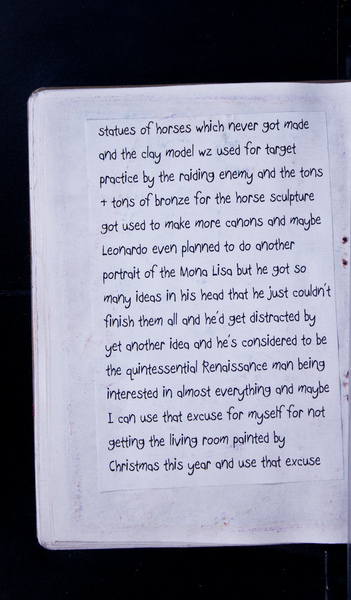 statues of horses which never got made
and the clay model wz used for target
practice by the raiding enemy and the tons
+ tons of bronze for the horse sculpture
got used to make more canons and maybe
Leonardo even planned to do another
portrait of the Mona Lisa but he got so
many ideas in his head that he just couldn't
finish them all and he'd get distracted by
yet another idea and he's considered to be
the quintessential Renaissance man being
interested in almost everything and maybe
I can use that excuse for myself for not
getting the living room painted by
Christmas this year and use that excuse